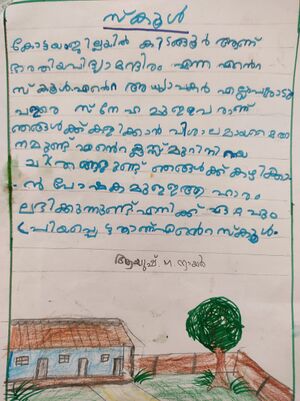 സ്കൂൾ
കോട്ടയംജില്ലയിൽ കിടങ്ങൂർ ആണ്
ഭാരതീയവിദ്യാമന്ദിരം എന്ന എന്റെ
സ്കൂൾഎന്റെ അധ്യാപകർ എല്ലാവരോടും
വളരെ സ്നേഹമുള്ളവരാണ്
ഞങ്ങൾക്ക് കളിക്കാൻ വിശാലമായ മൈതാ
നമുണ്ട് എന്റെ ക്ലാസ്മുറിനിറയെ
ചിത്രങ്ങളുണ്ട് ഞങ്ങൾക്ക് കഴിക്കാ
ൻ പോഷകമുള്ള ആഹാരം
ലഭിക്കുന്നുണ്ട് എനിക്ക് ഏറ്റവും
പ്രിയപ്പെട്ടതാണ്എന്റെസ്കൂൾ.
ആയുഷ്. നായർ